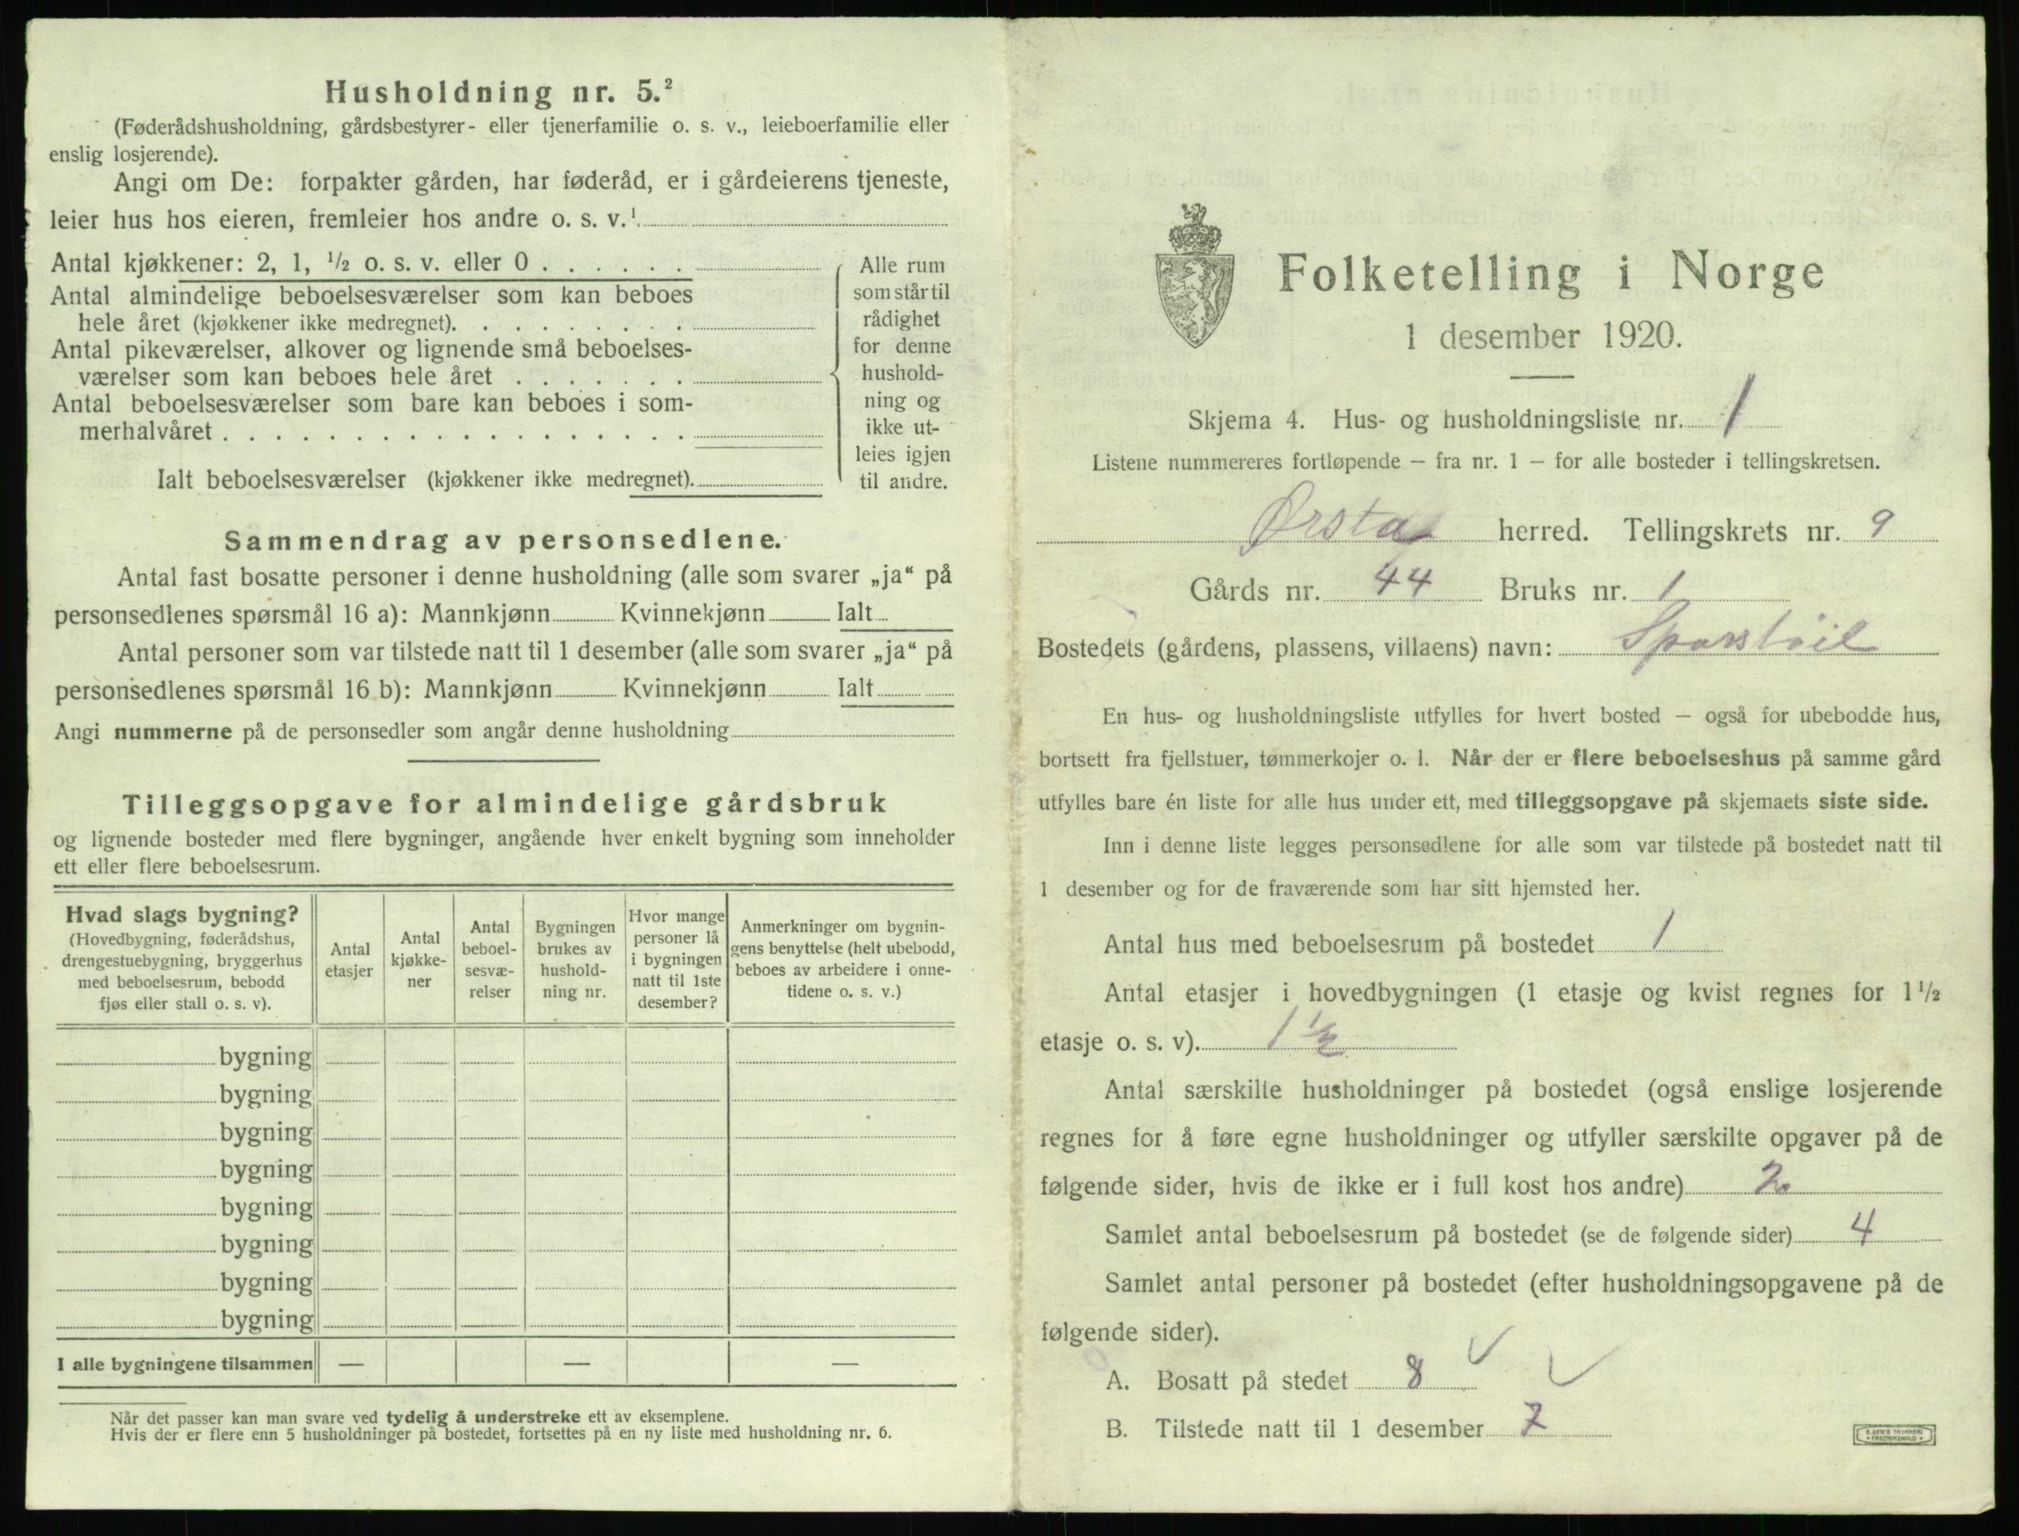 Husholdning nr. 5.²
(Føderådshusholdning, gårdsbestyrer- eller tjenerfamilie o. s. v., leieboerfamilie eller
enslig losjerende).
Angi om De: forpakter gården, har føderåd, er i gårdeierens tjeneste,
leier hus hos eieren, fremleier hos andre o. s. v.¹
Antal kjøkkener: 2, 1, ½ o. s. v. eller 0 . . . . . .
Antal almindelige beboelsesværelser som kan beboes
hele året (kjøkkener ikke medregnet). . . . . . . . .
Antal pikeværelser, alkover og lignende små beboelses-
værelser som kan beboes hele året . . . . . . .
Antal beboelsesværelser som bare kan beboes i som-
merhalvåret . . . . . . . . . . . . . . . . . .
Ialt beboelsesværelser (kjøkkener ikke medregnet).
Alle rum
som står til
rådighet
for denne
hushold-
ning og
ikke ut-
leies igjen
til andre.
Sammendrag av personsedlene.
Antal fast bosatte personer i denne husholdning (alle som svarer „ja“ på
personsedlenes spørsmål 16 a): Mannkjønn Kvinnekjønn Ialt
Antal personer som var tilstede natt til 1 desember (alle som svarer „ja“ på
personsedlenes spørsmål 16 b): Mannkjønn Kvinnekjønn Ialt
Angi nummerne på de personsedler som angår denne husholdning
Tilleggsopgave for almindelige gårdsbruk
og lignende bosteder med flere bygninger, angående hver enkelt bygning som inneholder
ett eller flere beboelsesrum.
Hvad slags bygning?
(Hovedbygning, føderådshus,
drengestuebygning, bryggerhus
med beboelsesrum, bebodd
fjøs eller stall o. s. v).
Antal
etasjer
Antal
kjøkke-
ner
Antal
beboel-
sesvæ-
relser
Bygningen
brukes av
hushold-
ning nr.
Hvor mange
personer lå
i bygningen
natt til 1ste
desember?
Anmerkninger om bygnin-
gens benyttelse (helt ubebodd,
beboes av arbeidere i onne-
tidene o. s. v.)
bygning
bygning
bygning
bygning
bygning
bygning
bygning
bygning
I alle bygningene tilsammen — — —
Når det passer kan man svare ved tydelig å understreke ett av eksemplene.
Hvis der er flere enn 5 husholdninger på bostedet, fortsettes på en ny liste med husholdning nr. 6.
Folketelling i Norge
1 desember 1920.
Skjema 4. Hus- og husholdningsliste nr. 1
Listene nummereres fortløpende – fra nr. 1 – for alle bosteder i tellingskretsen.
Ørsta herred. Tellingskrets nr. 9
Gårds nr. 44 Bruks nr. 1
Bostedets (gårdens, plassens, villaens) navn:
En hus- og husholdningsliste utfylles for hvert bosted – også for ubebodde hus,
bortsett fra fjellstuer, tømmerkojer o. l. Når der er flere beboelseshus på samme gård
utfylles bare én liste for alle hus under ett, med tilleggsopgave på skjemaets siste side.
Inn i denne liste legges personsedlene for alle som var tilstede på bostedet natt til
1 desember og for de fraværende som har sitt hjemsted her.
Antal hus med beboelsesrum på bostedet 1
Antal etasjer i hovedbygningen (1 etasje og kvist regnes for 1½
etasje o. s. v). 1½
Antal særskilte husholdninger på bostedet (også enslige losjerende
regnes for å føre egne husholdninger og utfyller særskilte opgaver på de
følgende sider, hvis de ikke er i full kost hos andre) 2
Samlet antal beboelsesrum på bostedet (se de følgende sider) 4
Samlet antal personer på bostedet (efter husholdningsopgavene på de
følgende sider).
A. Bosatt på stedet 8
B. Tilstede natt til 1 desember 7